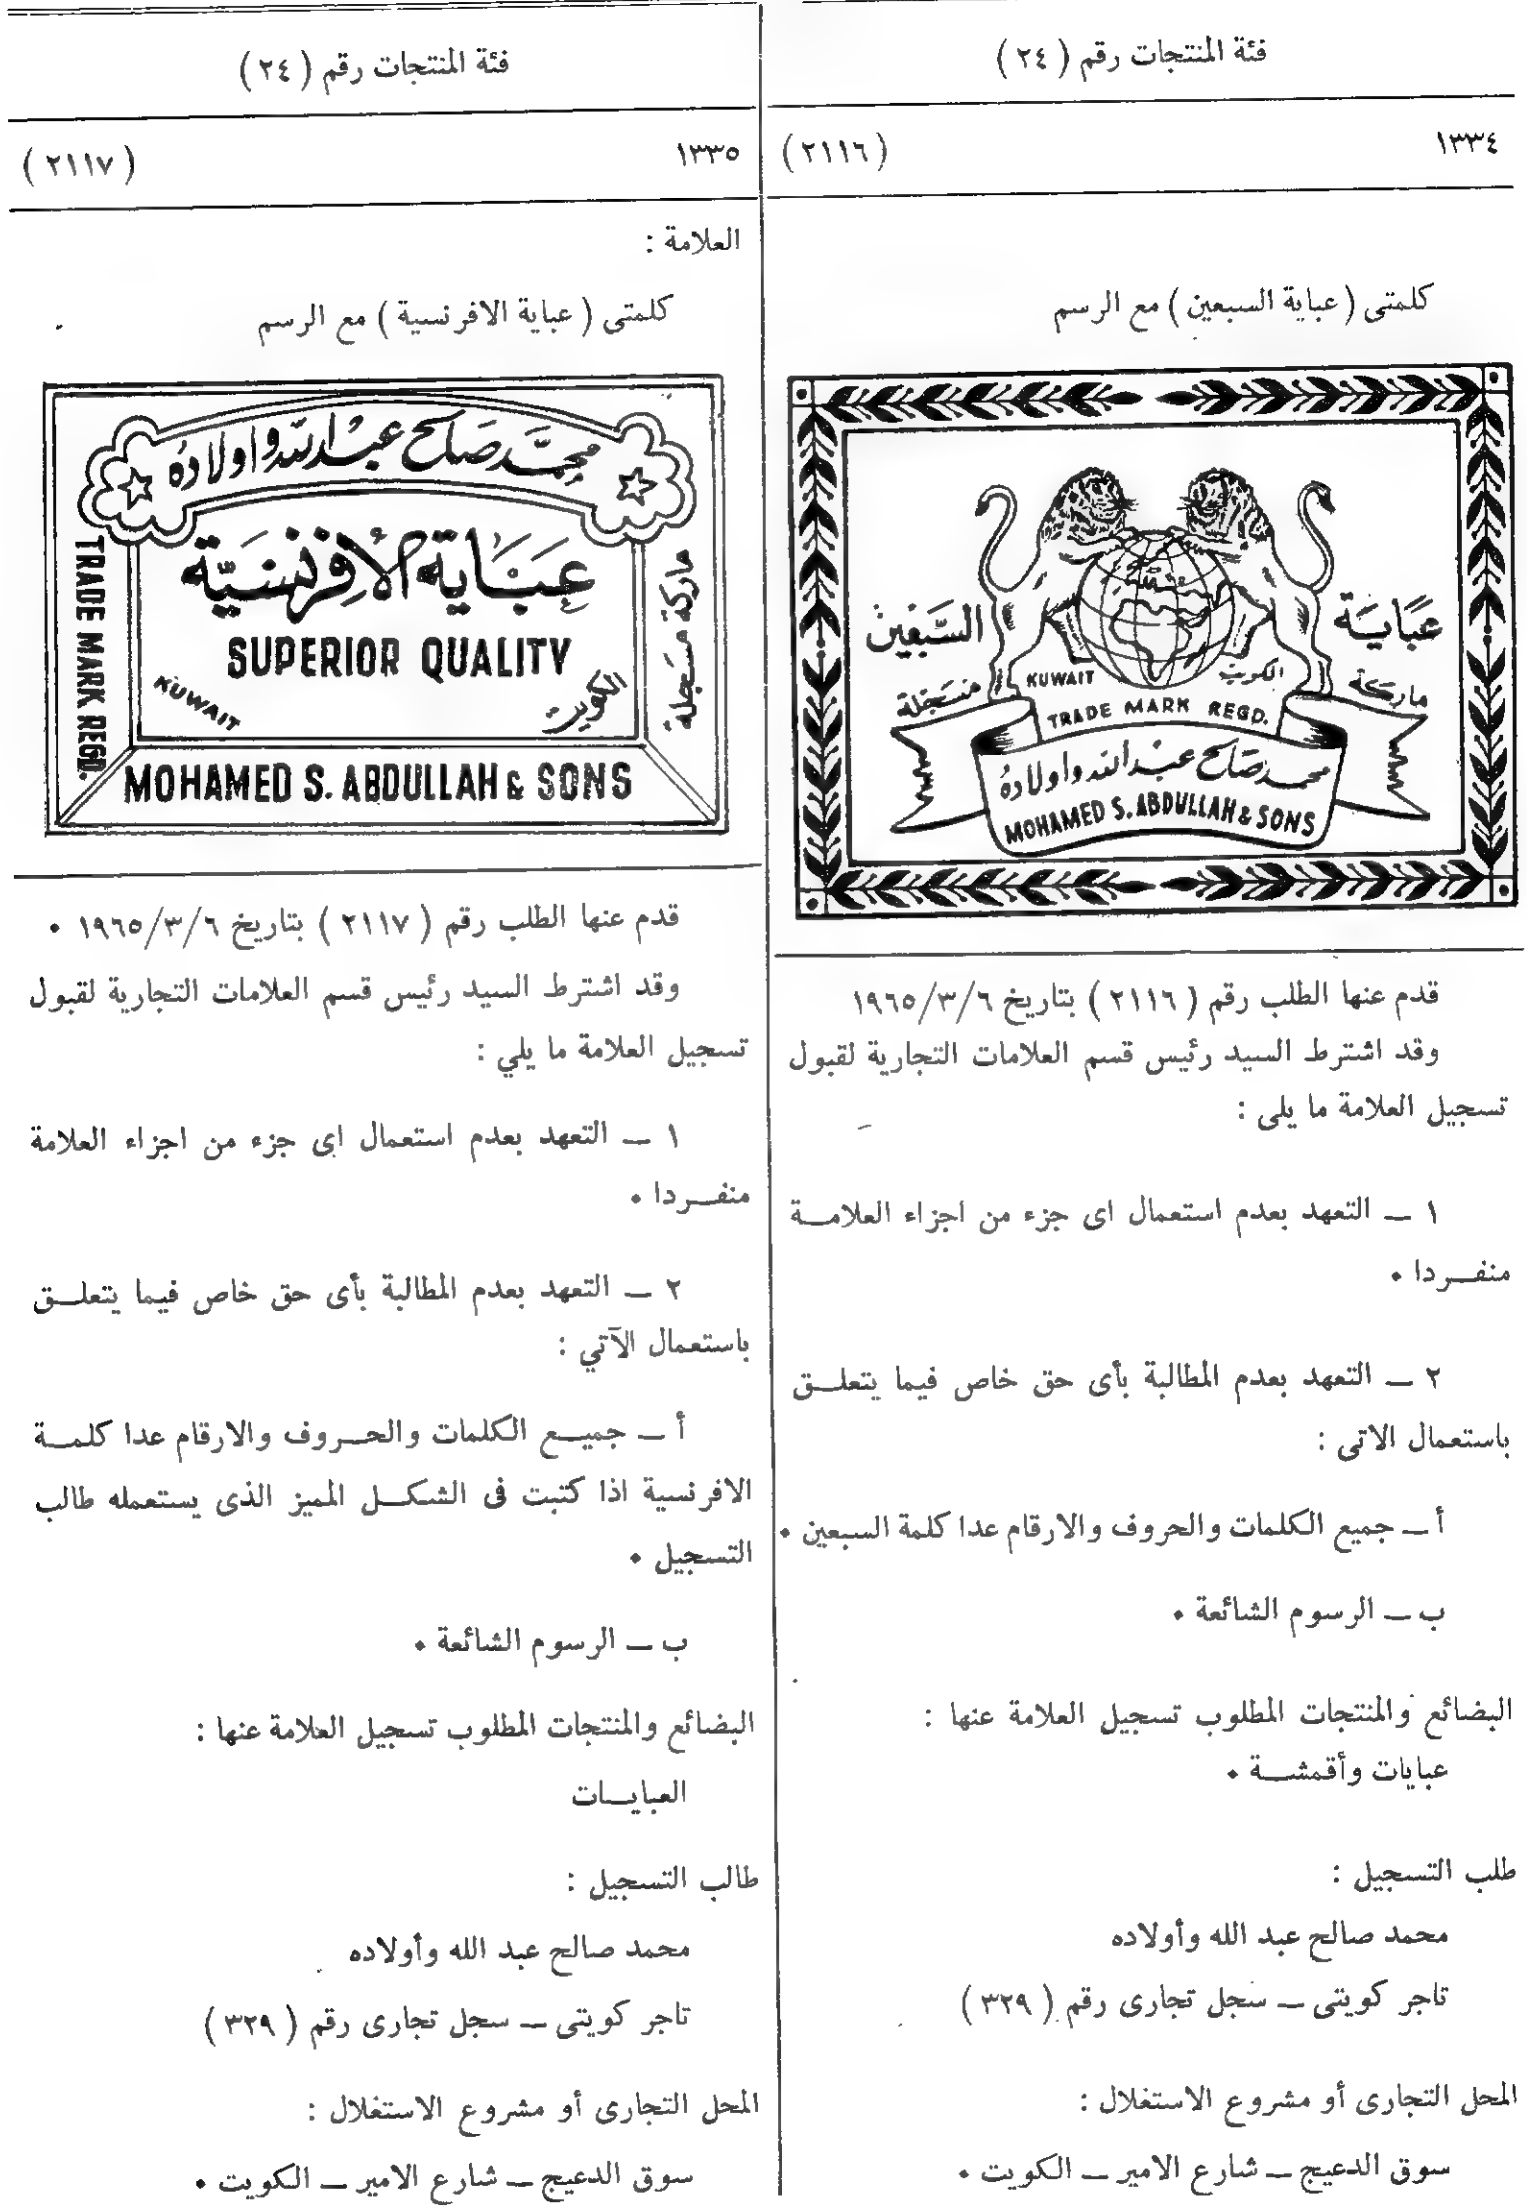 فئة المنتجات رقم ( ٢٤ )
١٣٣٤
( ٢١١٦ )
كلمتى ( عباية السبعين ) مع الرسم
عباية
السبعين
ماركة
مسجلة
KUWAIT
الكويت
TRADE MARK REGD.
محمد صالح عبد الله واولاده
MOHAMED S. ABDULLAH & SONS
قدم عنها الطلب رقم ( ٢١١٦ ) بتاريخ ١٩٦٥/٣/٦
وقد اشترط السيد رئيس قسم العلامات التجارية لقبول
تسجيل العلامة ما يلى :
١ ــ التعهد بعدم استعمال اى جزء من اجزاء العلامــة
منفــردا •
٢ ــ التعهد بعدم المطالبة بأى حق خاص فيما يتعلــق
باستعمال الاتى :
أ ــ جميع الكلمات والحروف والارقام عدا كلمة السبعين •
ب ــ الرسوم الشائعة •
البضائع والمنتجات المطلوب تسجيل العلامة عنها :
عبايات وأقمشــة •
طلب التسجيل :
محمد صالح عبد الله وأولاده
تاجر كويتى ــ سجل تجارى رقم ( ٣٢٩ )
المحل التجارى أو مشروع الاستغلال :
سوق الدعيج ــ شارع الامير ــ الكويت •
فئة المنتجات رقم ( ٢٤ )
١٣٣٥
( ٢١١٧ )
العلامة :
كلمتى ( عباية الافرنسية ) مع الرسم
محمد صالح عبد الله واولاده
عباية الأفرنسية
SUPERIOR QUALITY
KUWAIT
الكويت
ماركة مسجلة
TRADE MARK REGD.
MOHAMED S. ABDULLAH & SONS
قدم عنها الطلب رقم ( ٢١١٧ ) بتاريخ ١٩٦٥/٣/٦ •
وقد اشترط السيد رئيس قسم العلامات التجارية لقبول
تسجيل العلامة ما يلي :
١ ــ التعهد بعدم استعمال اى جزء من اجزاء العلامة
منفــردا •
٢ ــ التعهد بعدم المطالبة بأى حق خاص فيما يتعلــق
باستعمال الآتي :
أ ــ جميــع الكلمات والحــروف والارقام عدا كلمــة
الافرنسية اذا كتبت فى الشكــل المميز الذى يستعمله طالب
التسجيل •
ب ــ الرسوم الشائعة •
البضائع والمنتجات المطلوب تسجيل العلامة عنها :
العبايــات
طالب التسجيل :
محمد صالح عبد الله وأولاده
تاجر كويتى ــ سجل تجارى رقم ( ٣٢٩ )
المحل التجارى أو مشروع الاستغلال :
سوق الدعيج ــ شارع الامير ــ الكويت •